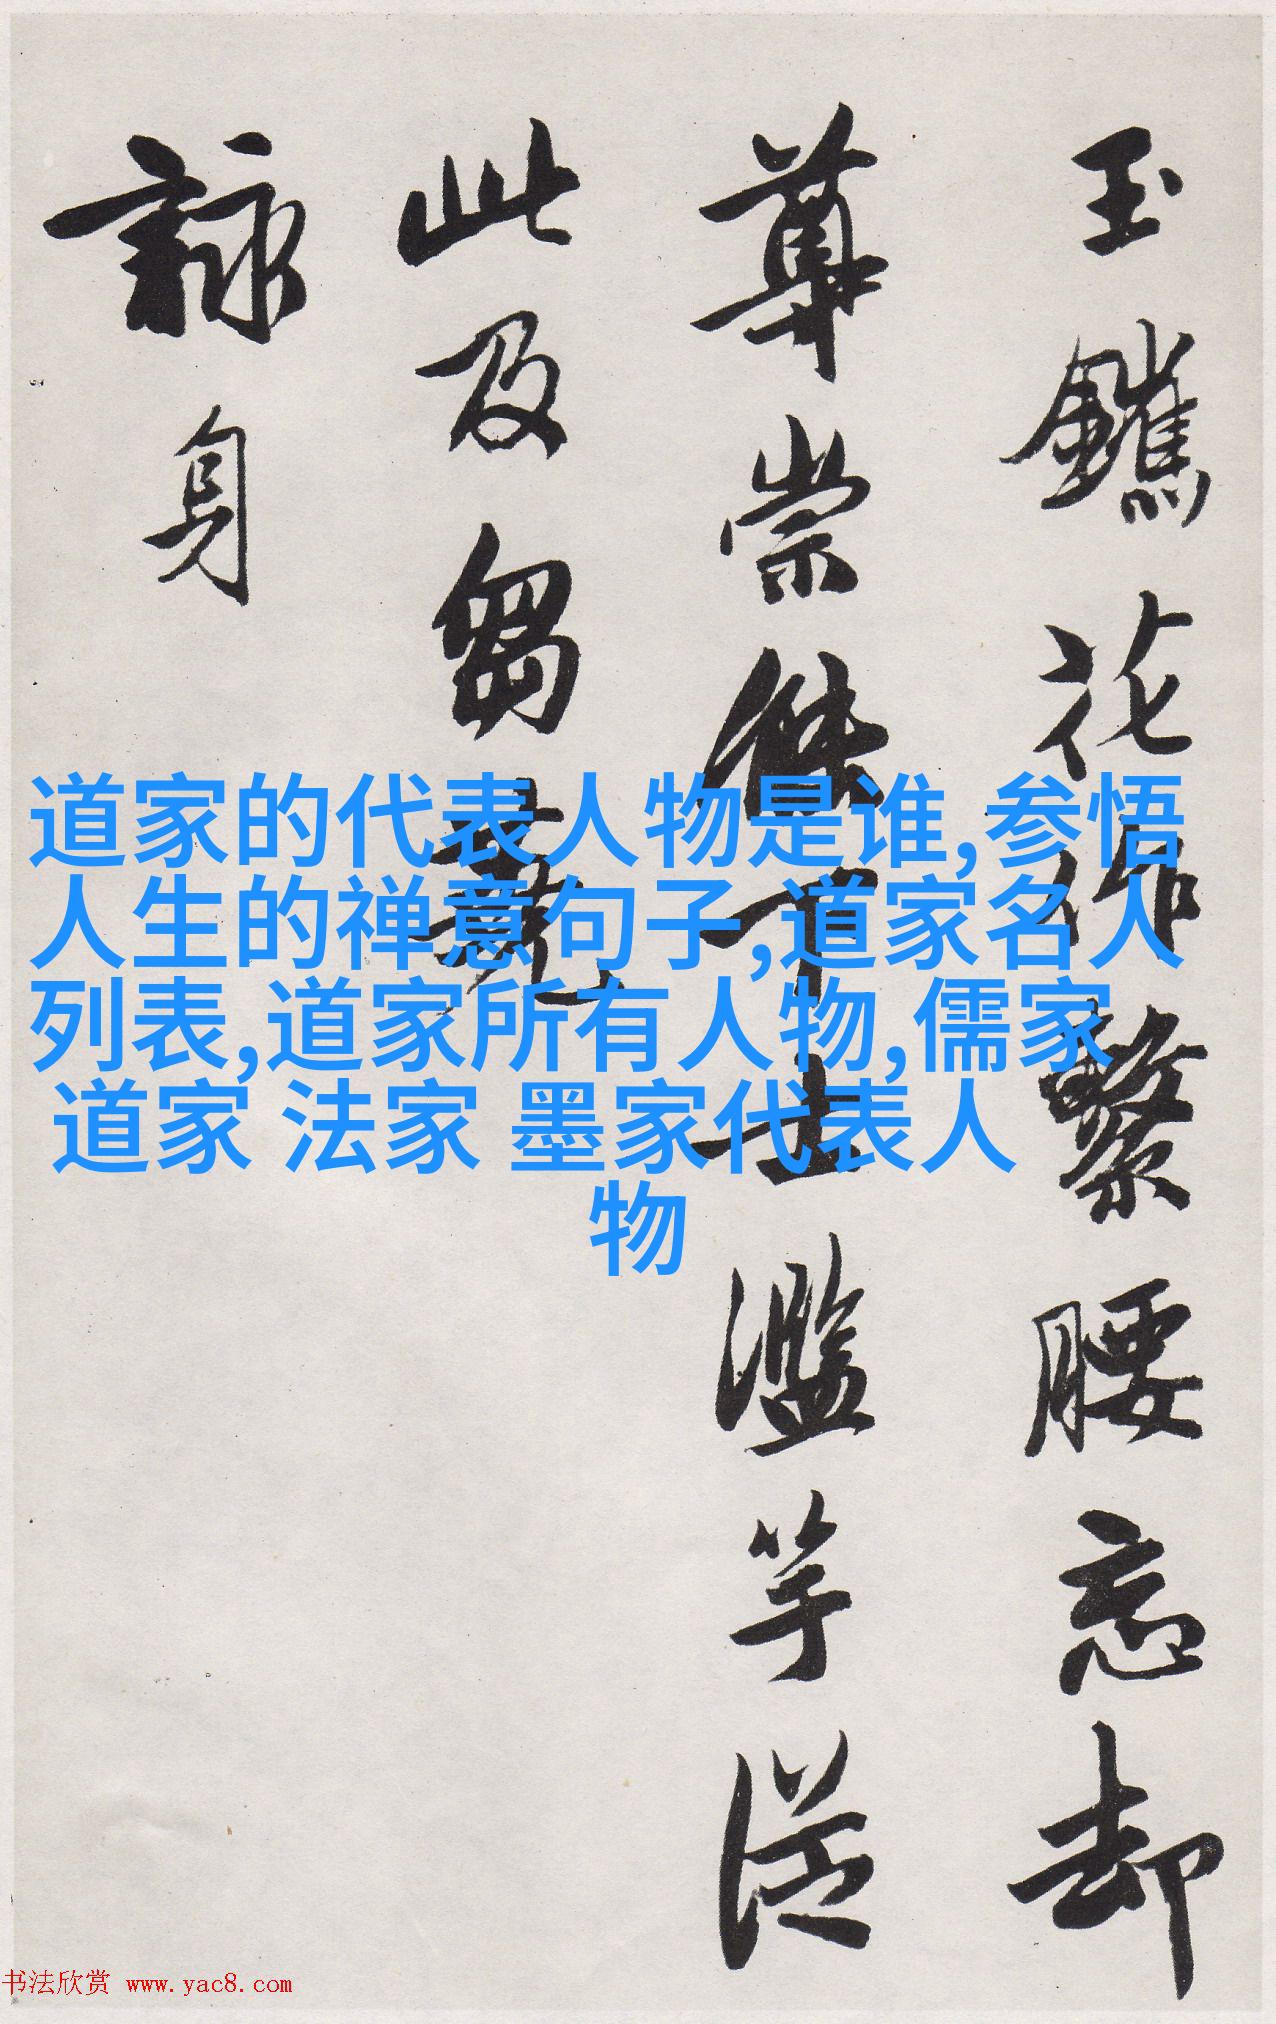 玉鑱花作繫腰忘却
尊崇傑下士濫竽從
此及芻蕘
詠身
道家的代表人物是谁,参悟
人生的禅意句子,道家名人
列表,道家所有人物,儒家
道家 法家 墨家代表人
物
书法欣赏 www.yac8.com